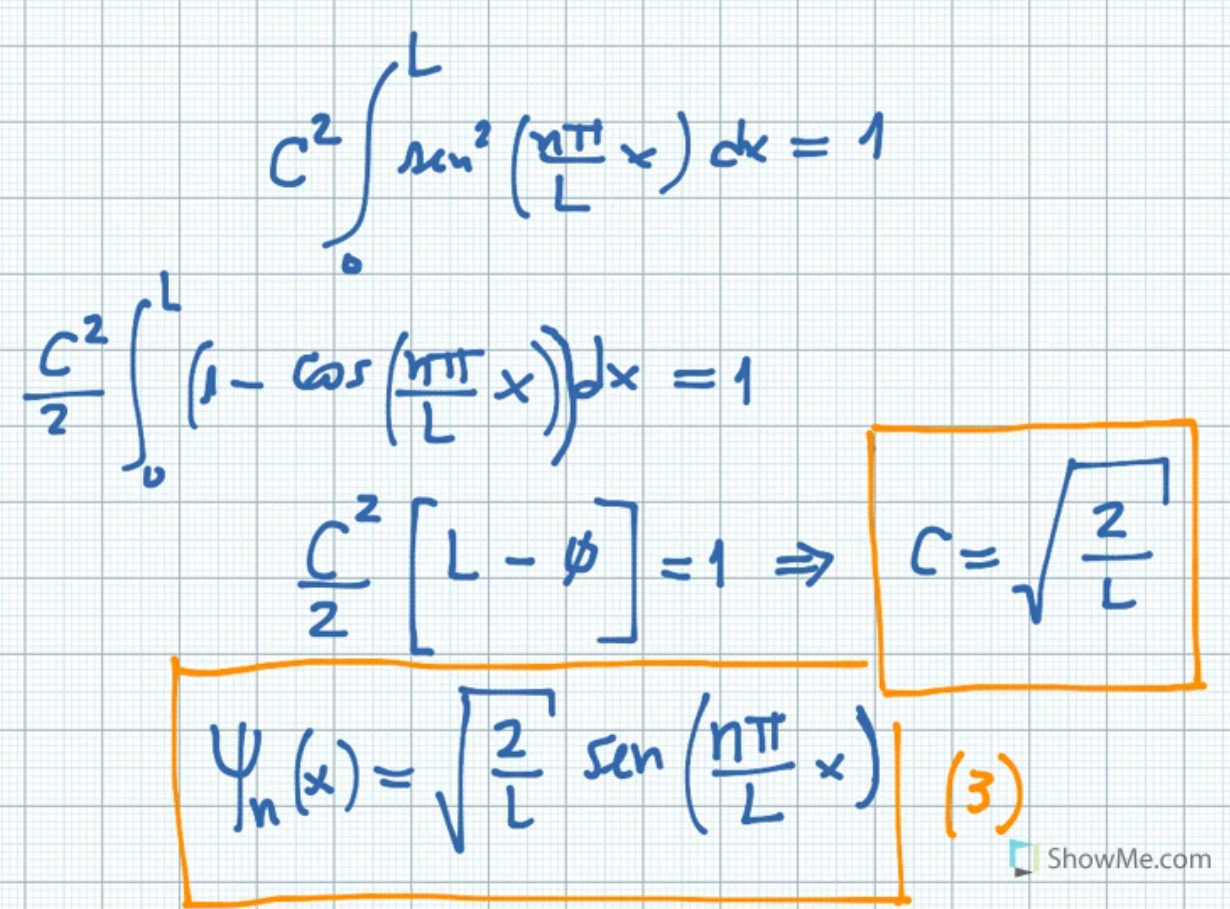 C² ∫₀ᴸ sen² (nπ/L x) dx = 1
C²/2 ∫₀ᴸ (1 - cos (nπ/L x)) dx = 1
C²/2 [L - ϕ] = 1 ⇒ C = √(2/L)
Ψₙ(x) = √(2/L) sen (nπ/L x) (3)
ShowMe.com